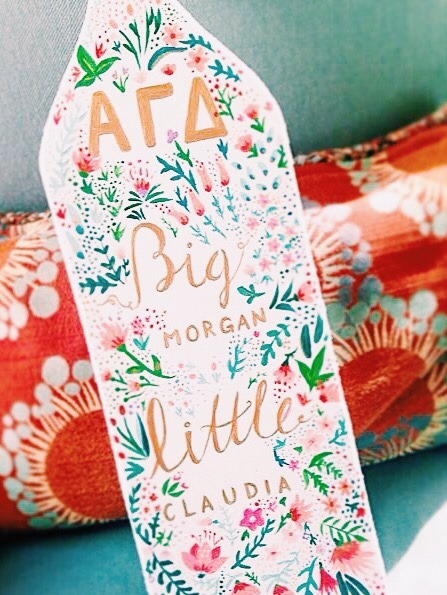 ΑΓΔ
Big
MORGAN
little
CLAUDIA